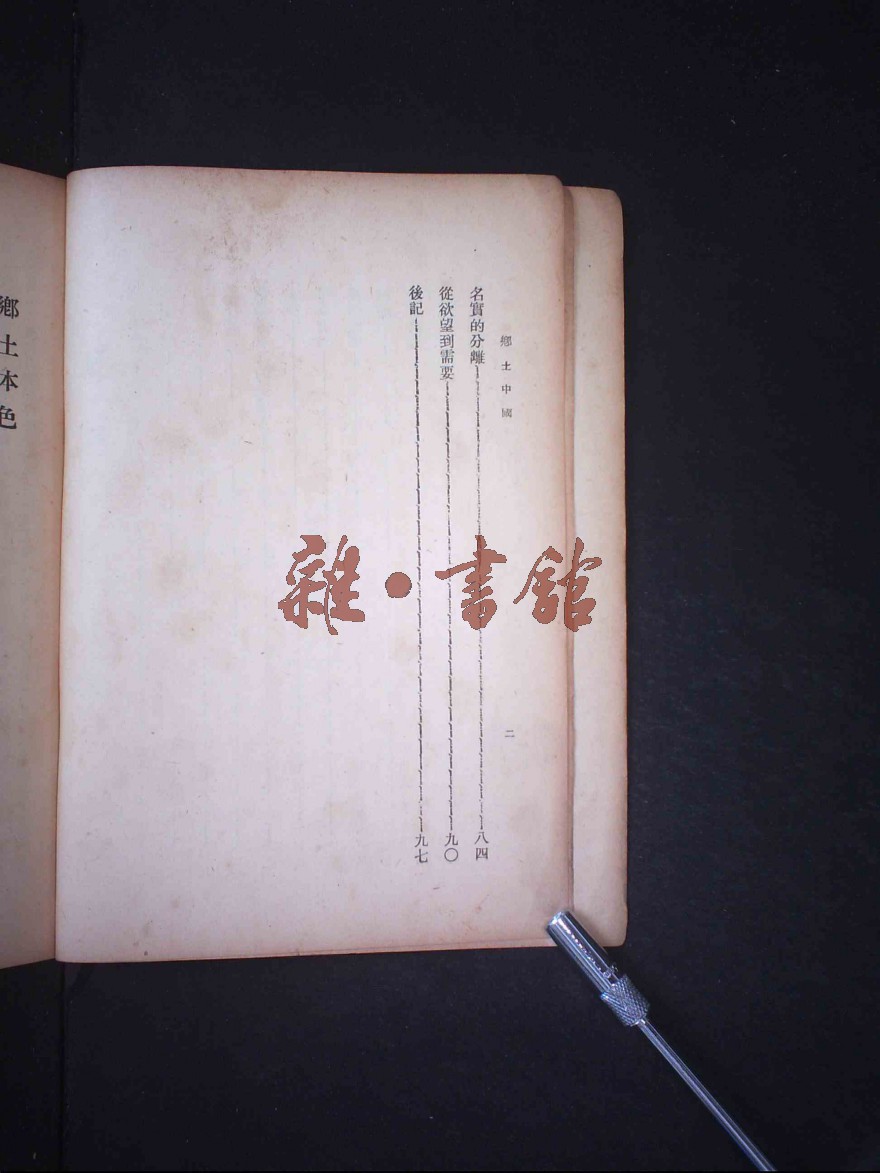 鄉土中國
二
名實的分離 八四
從欲望到需要 九〇
後記 九七
鄉土本色
雜・書館